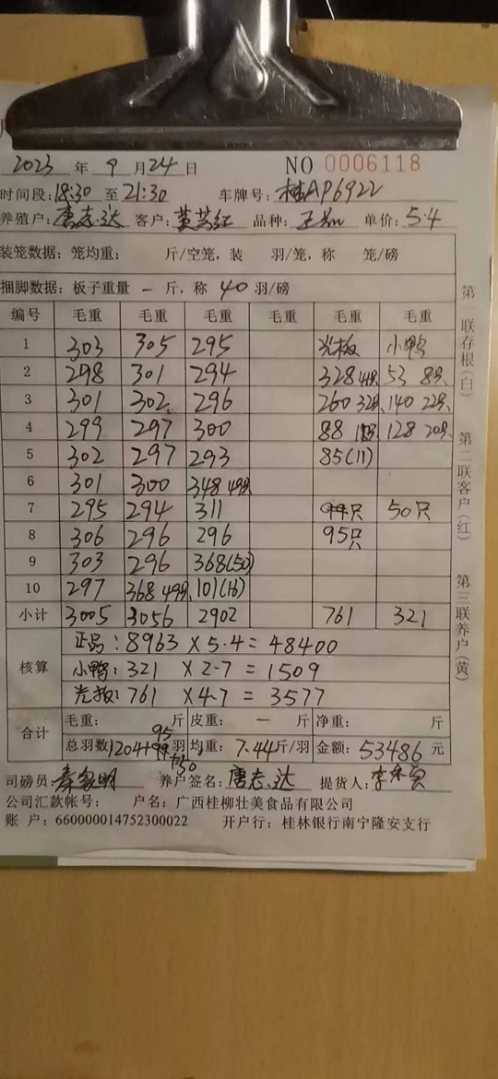 2023 年 9 月 24 日 NO 0006118
时间段: 18:30 至 21:30 车牌号: 桂AP6922
养殖户: 唐志达 客户: 黄芸红 品种: 单价: 5.4
装笼数据: 笼均重: 斤/空笼, 装 羽/笼, 称 笼/磅
捆脚数据: 板子重量 一 斤, 称 40 羽/磅
编号 毛重 毛重 毛重 毛重 毛重 毛重
1 303 305 295 光板 小鸭
2 298 301 294 328 53 8只
3 301 302 296 260 32只 140 22只
4 299 297 300 88 128 20只
5 302 297 293 85(11)
6 301 300 348 49只
7 295 294 311 只 50只
8 306 296 296 95只
9 303 296 368(50)
10 297 368 49只 101(16)
小计 3005 3056 2902 761 321
核算
正品: 8963 X 5.4 = 48400
小鸭: 321 X 2.7 = 1509
光板: 761 X 4.7 = 3577
合计
毛重: 斤 皮重: 一 斤 净重: 斤
总羽数 1204+95+50 羽 均重: 7.44 斤/羽 金额: 53486 元
司磅员: 养户签名: 唐志达 提货人:
公司汇款帐号: 户名: 广西桂柳壮美食品有限公司
账 户: 660000014752300022 开户行: 桂林银行南宁隆安支行
第一联存根(白)
第二联客户(红)
第三联养户(黄)